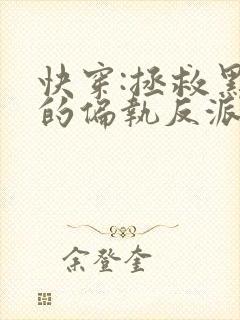 快穿:拯救黑
的偏执反派
余登奎